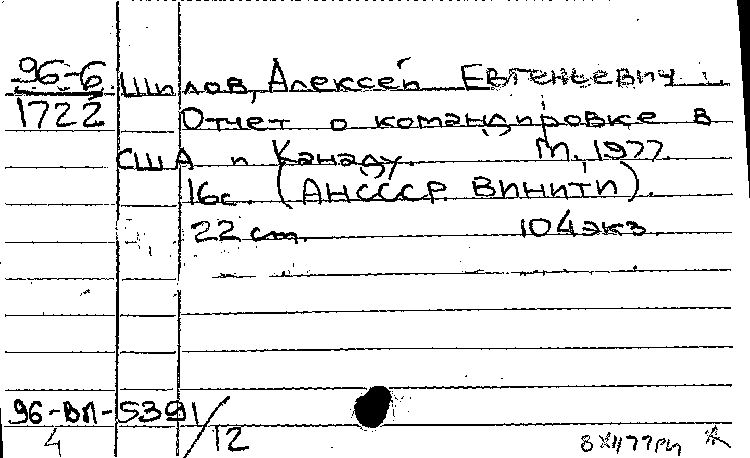 96-6 Шилов, Алексей Евгеньевич.
1722 Отчет о командировке в
США и Канаду. М., 1977.
16с. (АНСССР. ВИНИТИ).
22 cm. 104 экз.
96-ВП-5391/12
4